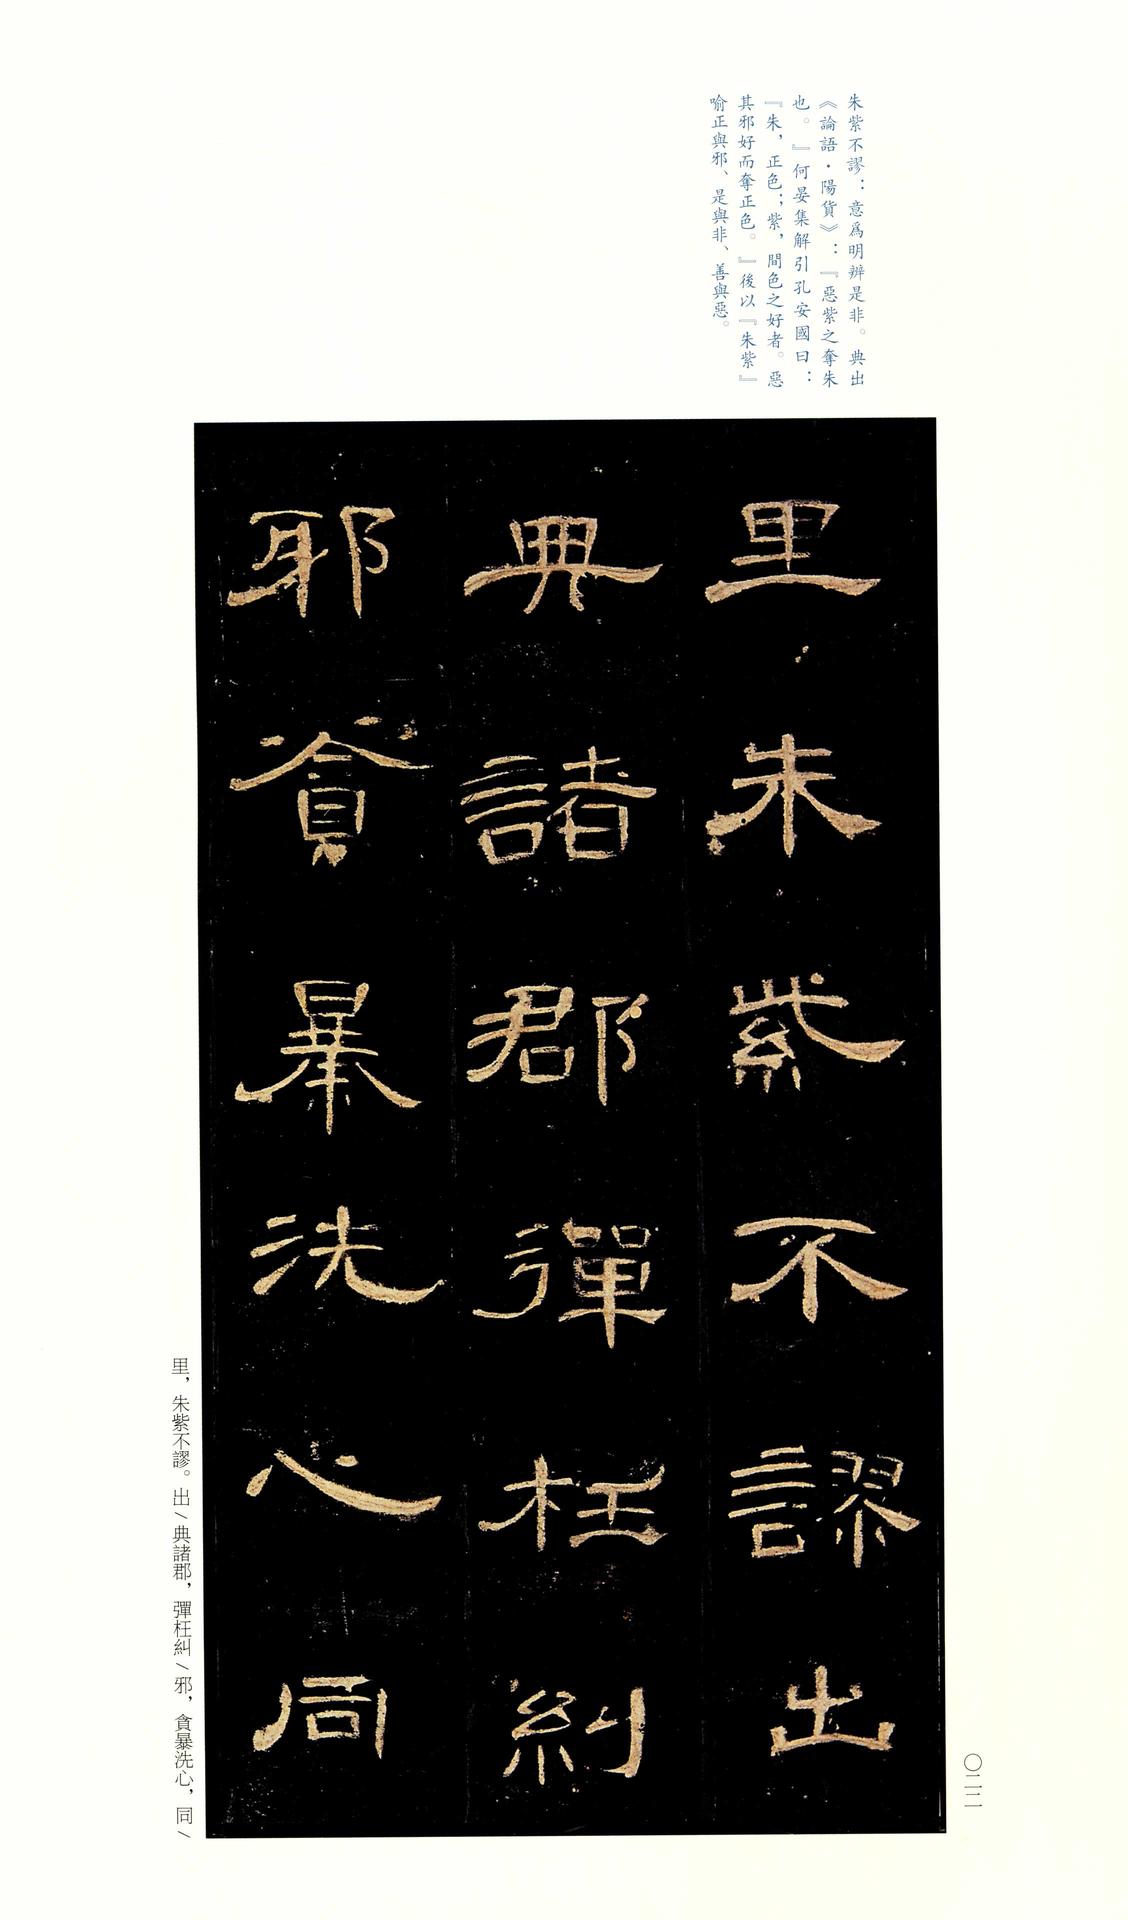 朱紫不謬：意爲明辨是非。典出
《論語·陽貨》：『惡紫之奪朱
也。』何晏集解引孔安國曰：
『朱，正色；紫，間色之好者。惡
其邪好而奪正色。』後以『朱紫』
喻正與邪、是與非、善與惡。
里朱紫不謬出
典諸郡彈枉糾
邪貪暴洗心同
里，朱紫不謬。出／典諸郡，彈枉糾／邪，貪暴洗心，同／
〇二二